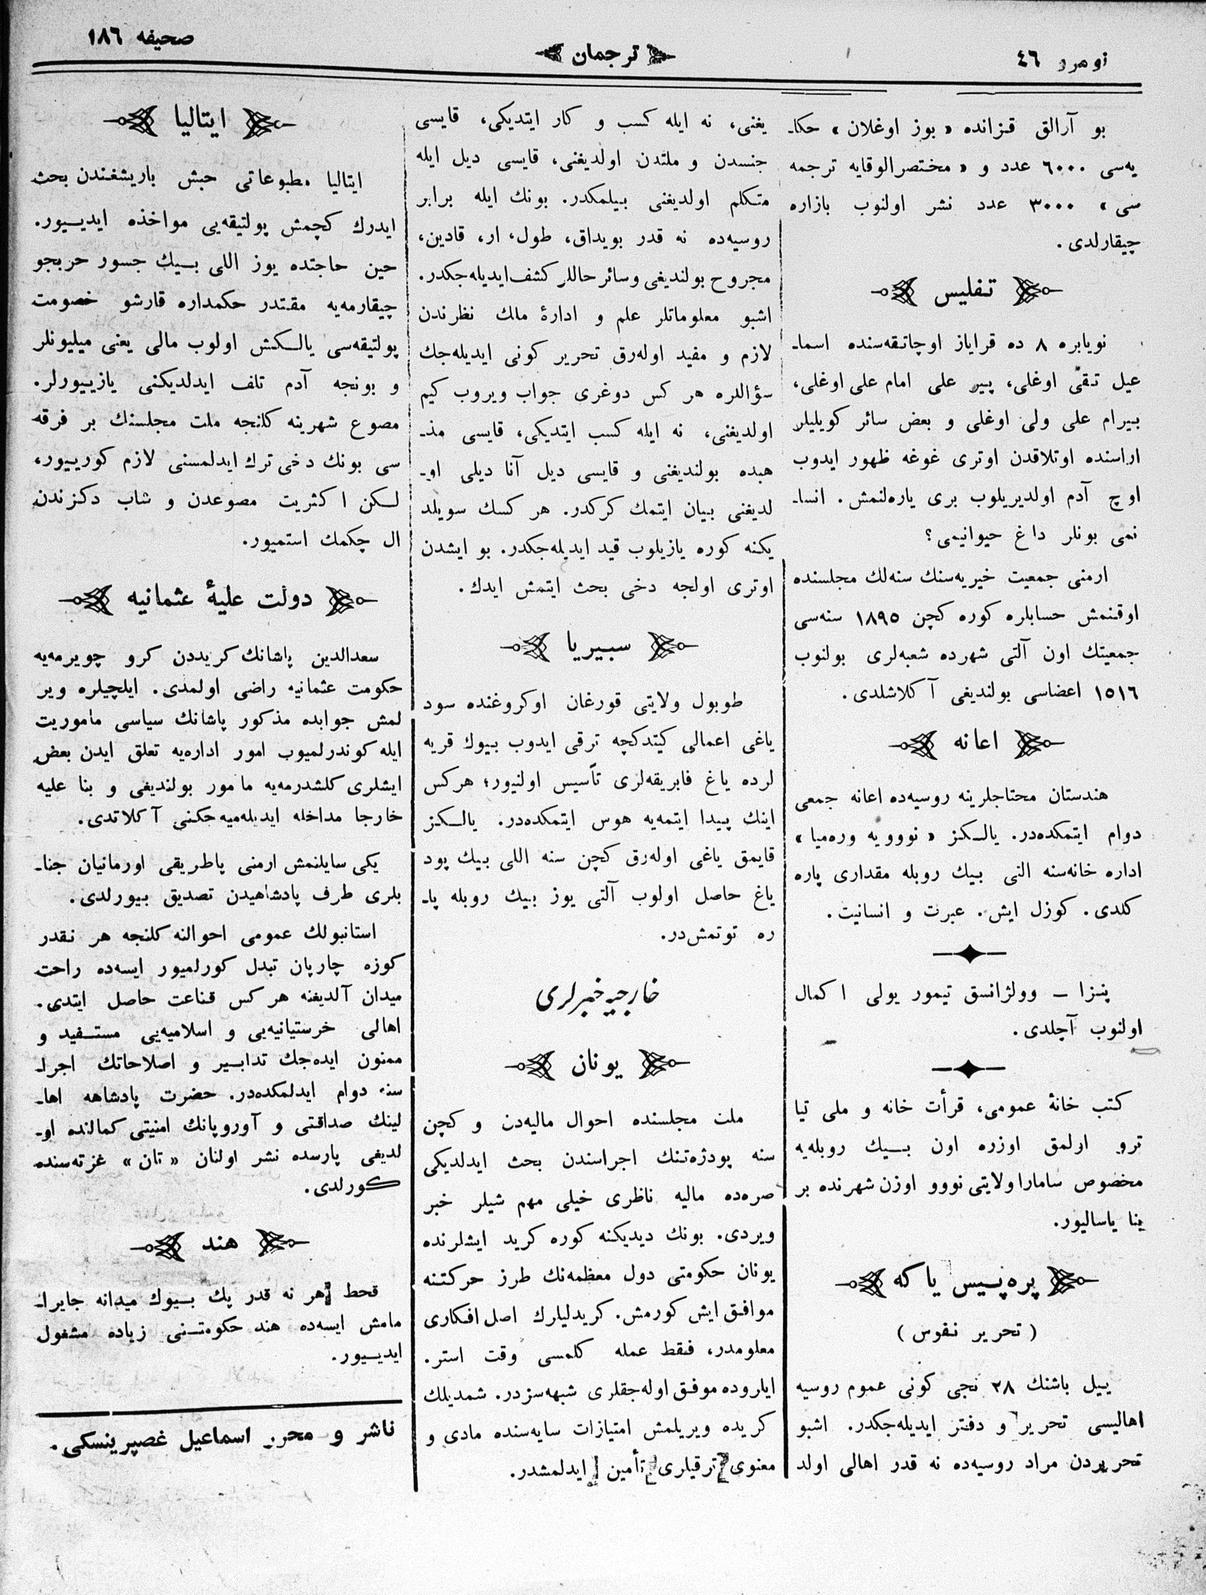 نومرو ٤٦
ترجمان
صحیفه ١٨٦
بو آرالق قزانده «بوز اوغلان» حكا-
یه‌سی ٦٠٠٠ عدد و «مختصرالوقایه ترجمه
سی» ٣٠٠٠ عدد نشر اولنوب بازاره
چیقارلدی.
تفلیس
نویابره ٨ ده قرایاز اوچاتقه‌سنده اسما-
عیل تقی اوغلی، پیر علی امام علی اوغلی،
بیرام علی ولی اوغلی و بعض سائر كویلیلر
اراسنده اوتلاقدن اوتری غوغه ظهور ایدوب
اوچ آدم اولدیریلوب بری یاره‌لنمش. انسا-
نمی بونلر داغ حیوانیمی؟
ارمنی جمعیت خیریه‌سنك سنه‌لك مجلسنده
اوقنمش حسابلره كوره كچن ١٨٩٥ سنه‌سی
جمعیتك اون آلتی شهرده شعبه‌لری بولنوب
١٥١٦ اعضاسی بولندیغی آكلاشلدی.
اعانه
هندستان محتاجلرینه روسیه‌ده اعانه جمعی
دوام ایتمكده‌در. یالكز «نووویه وره‌میا»
اداره خانه‌سنه اللی بیك روبله مقداری پاره
كلدی. كوزل ایش. عبرت و انسانیت.
پنزا – وولژانسق تیمور یولی اكمال
اولنوب آچلدی.
كتب خانۀ عمومی، قرأت خانه و ملی تیا
ترو ارلمق اوزره اون بیك روبله‌یه
مخصوص سامارا ولایتی نووو اوزن شهرنده بر
بنا یاسالیور.
پره‌پیس یاكه
(تحریر نفوس)
ییل باشنك ٢٨ نجی كونی عموم روسیه
اهالیسی تحریر و دفتر ایدیله‌جكدر. اشبو
تحریردن مراد روسیه‌ده نه قدر اهالی اولد
یغنی، نه ایله كسب و كار ایتدیكی، قایسی
جنسدن و ملتدن اولدیغنی، قایسی دیل ایله
متكلم اولدیغنی بیلمكدر. بونك ایله برابر
روسیه‌ده نه قدر بویداق، طول، ار، قادین،
مجروح بولندیغی و سائر حاللر كشف ایدیله‌جكدر.
اشبو معلوماتلر علم و ادارۀ مالك نظرندن
لازم و مفید اوله‌رق تحریر كونی ایدیله‌جك
سؤاللره هر كس دوغری جواب ویروب كیم
اولدیغنی، نه ایله كسب ایتدیكی، قایسی مذ-
هبده بولندیغنی و قایسی دیل آنا دیلی او-
لدیغنی بیان ایتمك كركدر. هر كسك سویلد
یكنه كوره یازیلوب قید ایدیله‌جكدر. بو ایشدن
اوتری اولجه دخی بحث ایتمش ایدك.
سبیریا
طوبول ولایتی قورغان اوكروغنده سود
یاغی اعمالی كیتدكچه ترقی ایدوب بیوك قریه
لرده یاغ فابریقه‌لری تأسیس اولنیور؛ هركس
اینك پیدا ایتمه‌یه هوس ایتمكده‌در. یالكز
قایمق یاغی اوله‌رق كچن سنه اللی بیك پود
یاغ حاصل اولوب آلتی یوز بیك روبله پا-
ره توتمش‌در.
خارجیه خبرلری
یونان
ملت مجلسنده احوال مالیه‌دن و كچن
سنه پودژه‌تنك اجراسندن بحث ایدلدیكی
صره‌ده مالیه ناظری خیلی مهم شیلر خبر
ویردی. بونك دیدیكنه كوره كرید ایشلرنده
یونان حكومتی دول معظمه‌نك طرز حركتنه
موافق ایش كورمش. كریدلیلرك اصل افكاری
معلومدر، فقط عمله كلمسی وقت استر.
ایلروده موفق اوله‌جقلری شبهه‌سزدر. شمدیلك
كریده ویریلمش امتیازات سایه‌سنده مادی و
معنوی ترقیلری تأمین ایدلمشدر.
ایتالیا
ایتالیا مطبوعاتی حبش باریشغندن بحث
ایدرك كچمش پولتیقه‌یی مواخذه ایدییور.
حین حاجتده یوز اللی بیك جسور حربجو
چیقارمه‌یه مقتدر حكمداره قارشو خصومت
پولتیقه‌سی یالكش اولوب مالی یعنی میلیونلر
و بونجه آدم تلف ایدلدیكنی یازییورلر.
مصوع شهرینه كلنجه ملت مجلسنك بر فرقه
سی بونك دخی ترك ایدلمسنی لازم كورییور،
لكن اكثریت مصوعدن و شاب دكزندن
ال چكمك استمیور.
دولت علیۀ عثمانیه
سعدالدین پاشانك كریددن كرو چویرمه‌یه
حكومت عثمانیه راضی اولمدی. ایلچیلره ویر
لمش جوابده مذكور پاشانك سیاسی ماموریت
ایله كوندرلمیوب امور اداره‌یه تعلق ایدن بعض
ایشلری كلشدرمه‌یه مامور بولندیغی و بنا علیه
خارجا مداخله ایدیله‌میه‌جكنی آكلاتدی.
یكی سایلنمش ارمنی پاطریقی اورمانیان جنا-
بلری طرف پادشاهیدن تصدیق بیورلدی.
استانبولك عمومی احوالنه كلنجه هر نقدر
كوزه چارپان تبدل كورلمیور ایسه‌ده راحت
میدان آلدیغنه هر كس قناعت حاصل ایتدی.
اهالی خرستیانیه‌یی و اسلامیه‌یی مستفید و
ممنون ایده‌جك تدابیر و اصلاحاتك اجرا-
سنه دوام ایدلمكده‌در. حضرت پادشاهه اها-
لینك صداقتی و آوروپانك امنیتی كمالنده او-
لدیغی پارسده نشر اولنان «تان» غزته‌سنده
كورلدی.
هند
قحط هر نه قدر پك بیوك میدانه جایرا-
مامش ایسه‌ده هند حكومتنی زیاده مشغول
ایدییور.
ناشر و محرر اسماعیل غصپرینسكی.